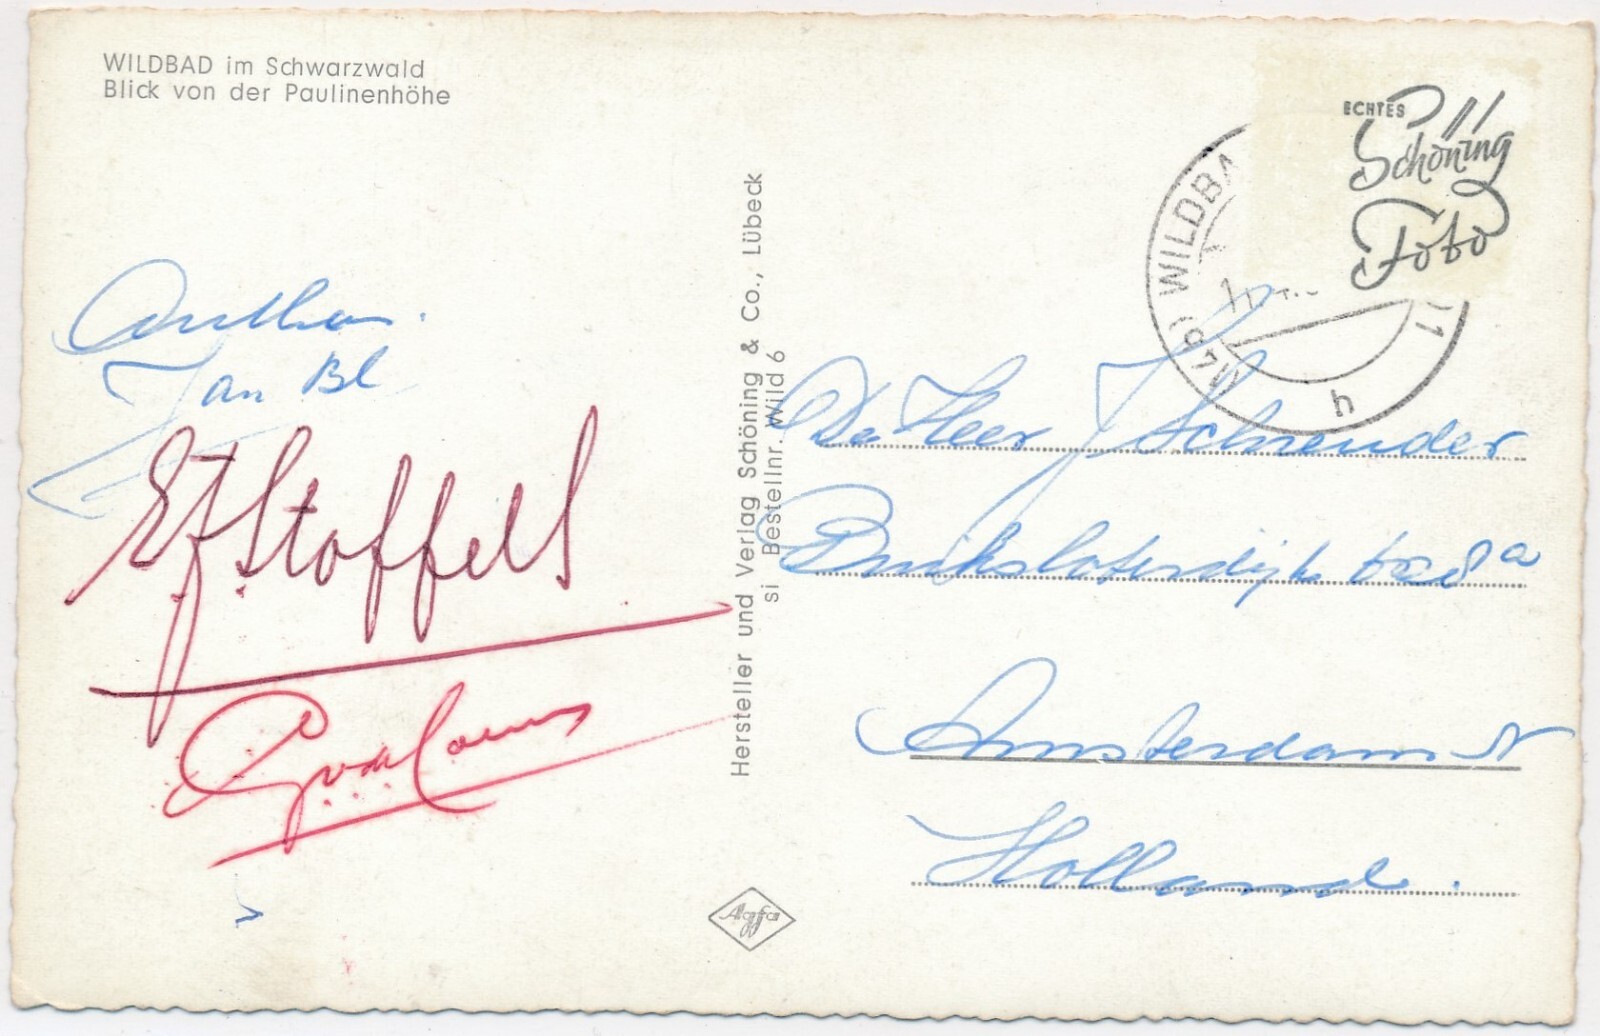 WILDBAD im Schwarzwald
Blick von der Paulinenhöhe
Jan Bl
EJ Stoffels
Hersteller und Verlag Schöning & Co., Lübeck
si Bestellnr. Wild 6
Agfa
ECHTES
Schöning
Foto
(14b) WILDBA
h
De Heer J Schreuder
Buiksloterdijk
Amsterdam N
Holland.